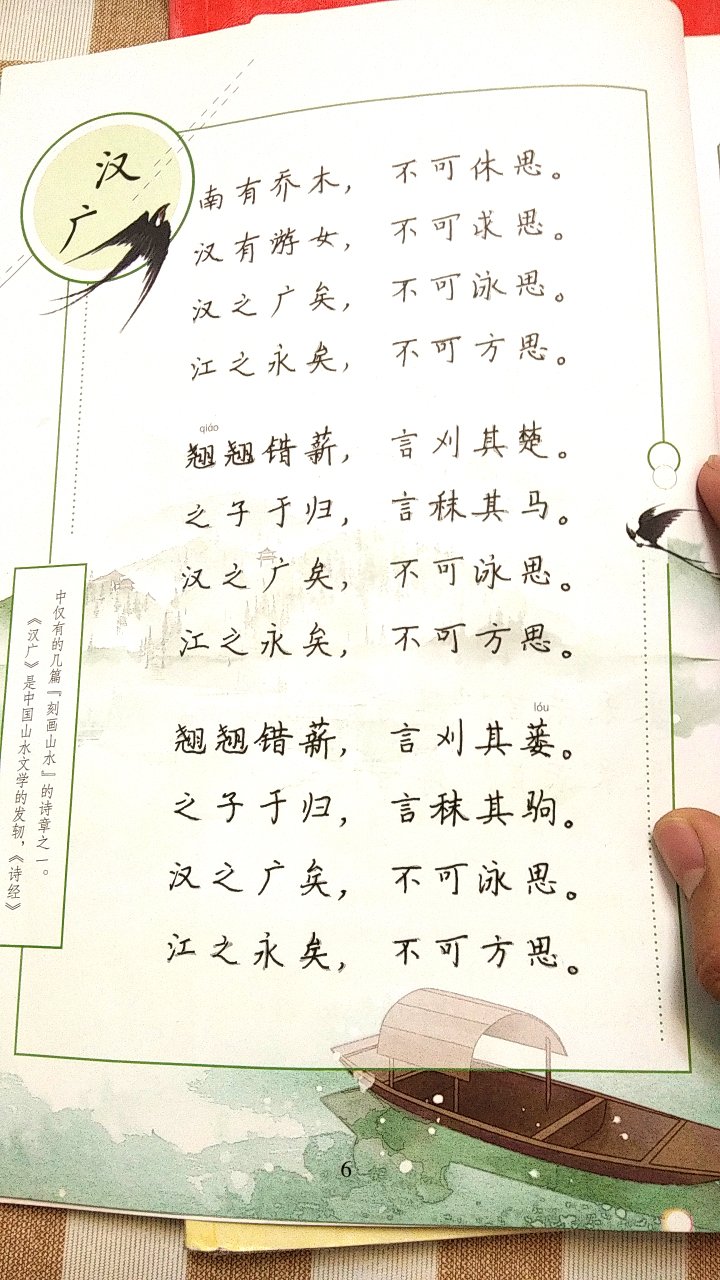 汉
广
南有乔木，不可休思。
汉有游女，不可求思。
汉之广矣，不可泳思。
江之永矣，不可方思。
qiáo
翘翘错薪，言刈其楚。
之子于归，言秣其马。
汉之广矣，不可泳思。
江之永矣，不可方思。
lóu
翘翘错薪，言刈其蒌。
之子于归，言秣其驹。
汉之广矣，不可泳思。
江之永矣，不可方思。
《汉广》是中国山水文学的发轫，《诗经》
中仅有的几篇『刻画山水』的诗章之一。
6